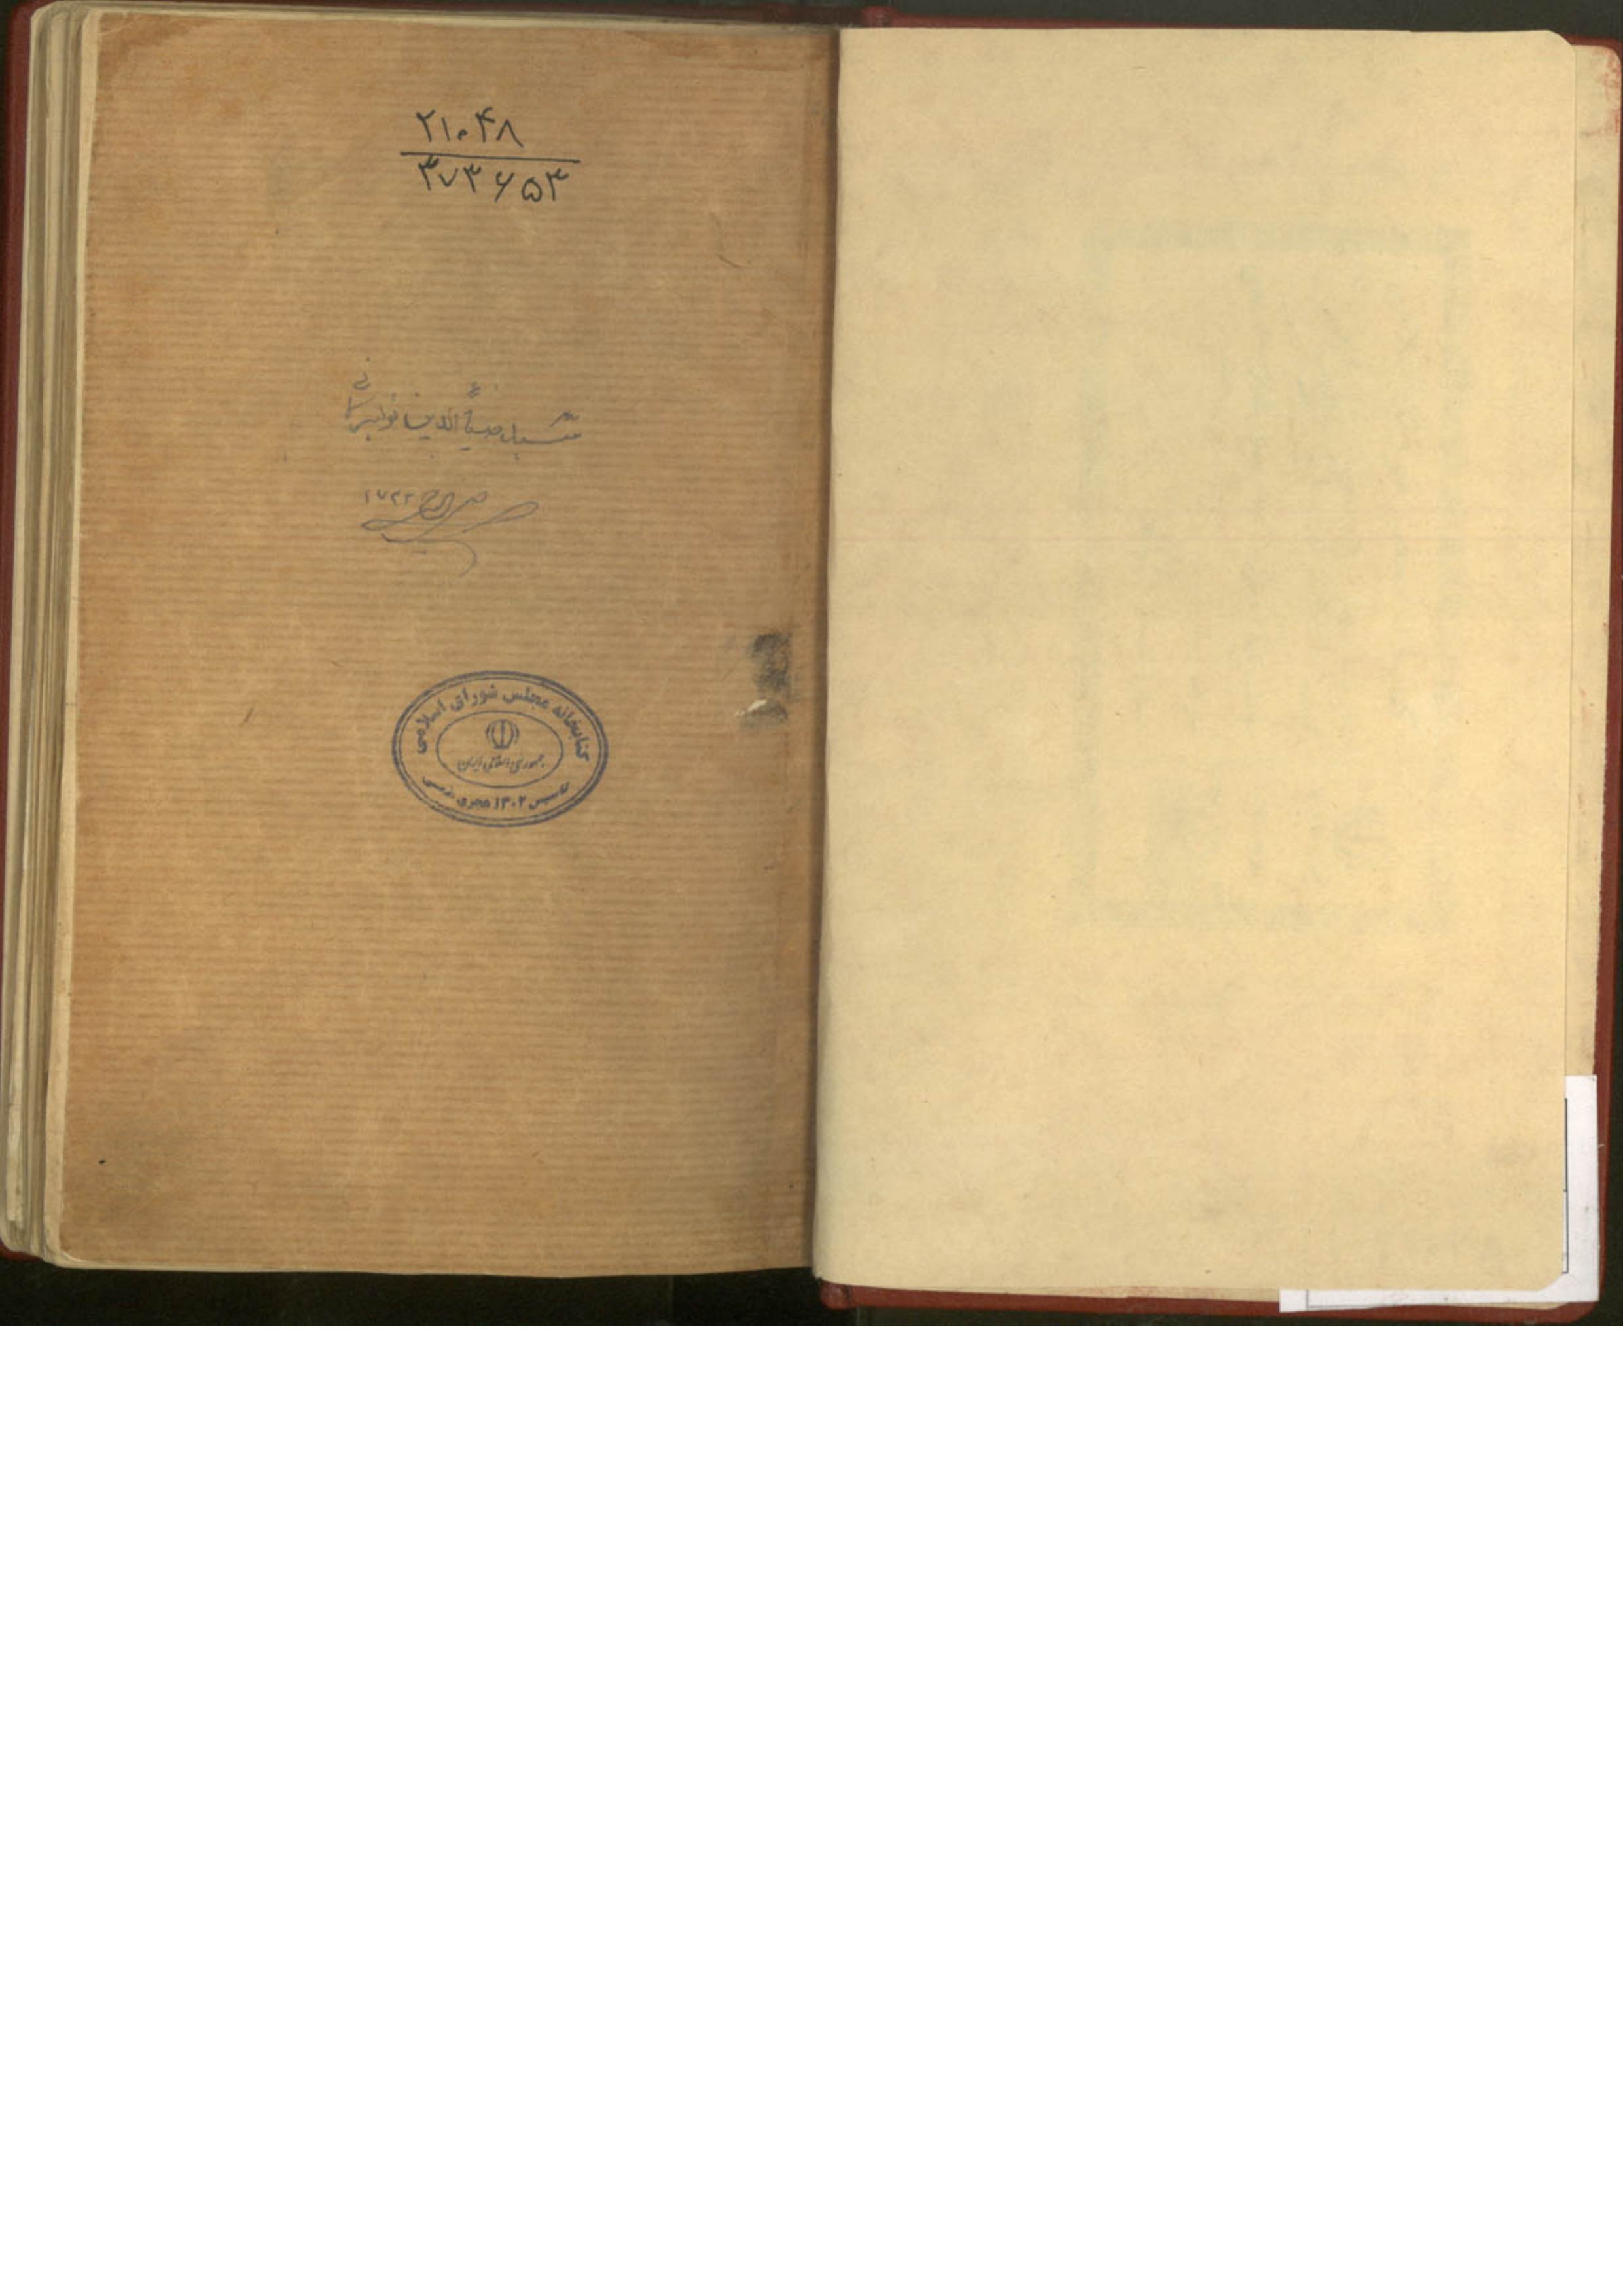 ۲۱۰۴۸
۳۷۳۶۵۳
ضیاءالدین
کتابخانه مجلس شورای اسلامی
جمهوری اسلامی ایران
تاسیس ۱۳۰۲ هجری شمسی